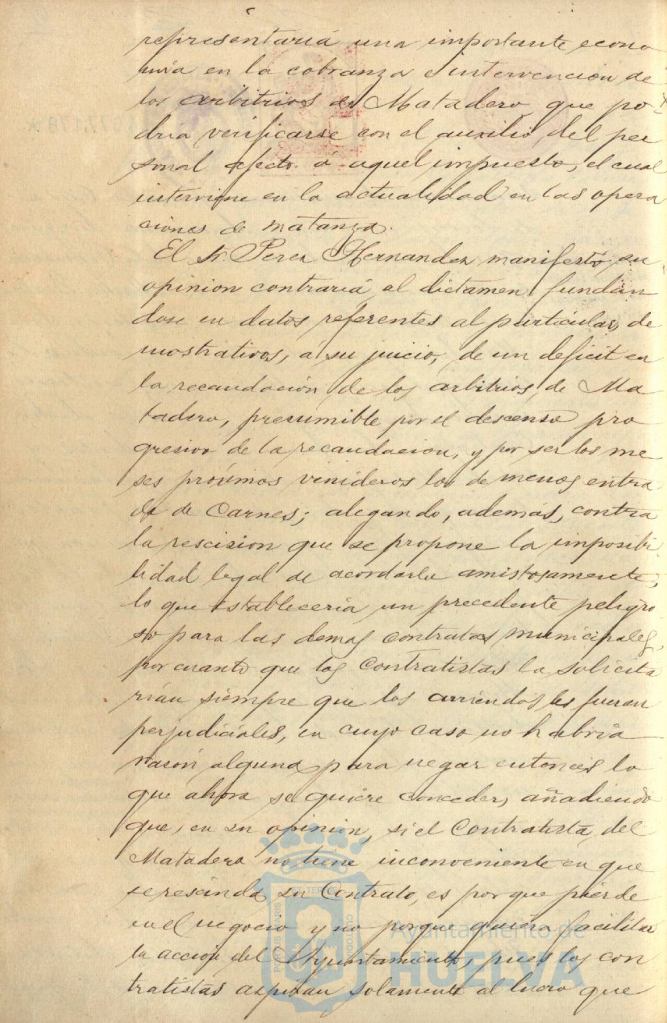 representaría una importante econo
mía en la cobranza é intervención de
los arbitrios de Matadero que po
dria verificarse con el auxilio del per
sonal afecto á aquel impuesto, el cual
interviene en la actualidad en las opera
ciones de matanza.
El Sr. Perez Hernandez manifestó su
opinion contraria al dictamen fundan
dose en datos referentes al particular, de
mostrativos, á su juicio, de un deficit en
la recaudacion de los arbitrios de Ma
tadero, presumible por el descenso pro
gresivo de la recaudacion, y por ser los me
ses próximos venideros los de menos entra
da de Carnes; alegando, además, contra
la rescision que se propone la imposibi
lidad legal de acordarla amistosamente,
lo que estableceria un precedente peligro
so para los demas contratos municipales,
por cuanto que los Contratistas la solicita
rian siempre que los arriendos les fueran
perjudiciales, en cuyo caso no habria
razón alguna para negar entonces lo
que ahora se quiere conceder, añadiendo
que, en su opinion, si el Contratista del
Matadero no tiene inconveniente en que
se rescinda su Contrato, es por que pierde
en el negocio y no porque quiera facilitar
la acción del Ayuntamiento, pues los con
tratistas aspiran solamente al lucro que
Ayuntamiento de
HUELVA